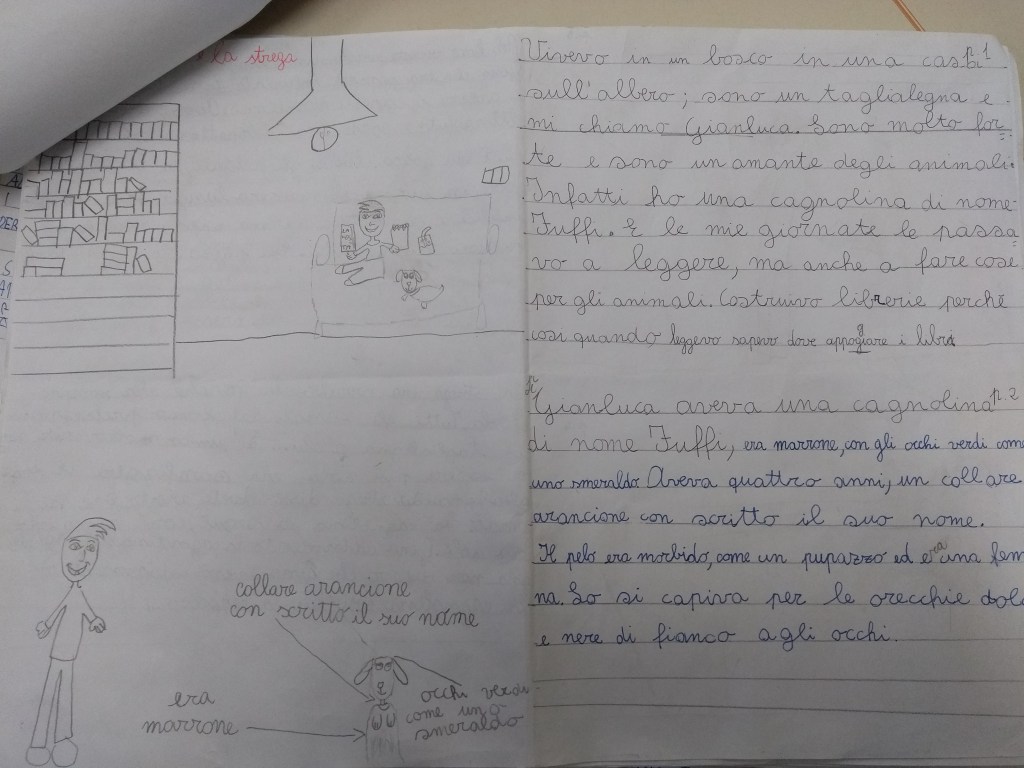 la strega
collare arancione
con scritto il suo nome
era
marrone
occhi verdi
come uno
smeraldo
Vivevo in un bosco in una casa p.1
sull'albero; sono un taglialegna e
mi chiamo Gianluca. Sono molto for-
te e sono un amante degli animali.
Infatti ho una cagnolina di nome
Fuffi. E le mie giornate le passa-
vo a leggere, ma anche a fare cose
per gli animali. Costruivo librerie perché
così quando leggevo sapevo dove appoggiare i libri
Gianluca aveva una cagnolina p.2
di nome Fuffi, era marrone, con gli occhi verdi come
uno smeraldo. Aveva quattro anni, un collare
arancione con scritto il suo nome.
Il pelo era morbido, come un pupazzo ed era una fem
na. Lo si capiva per le orecchie
e nere di fianco agli occhi.